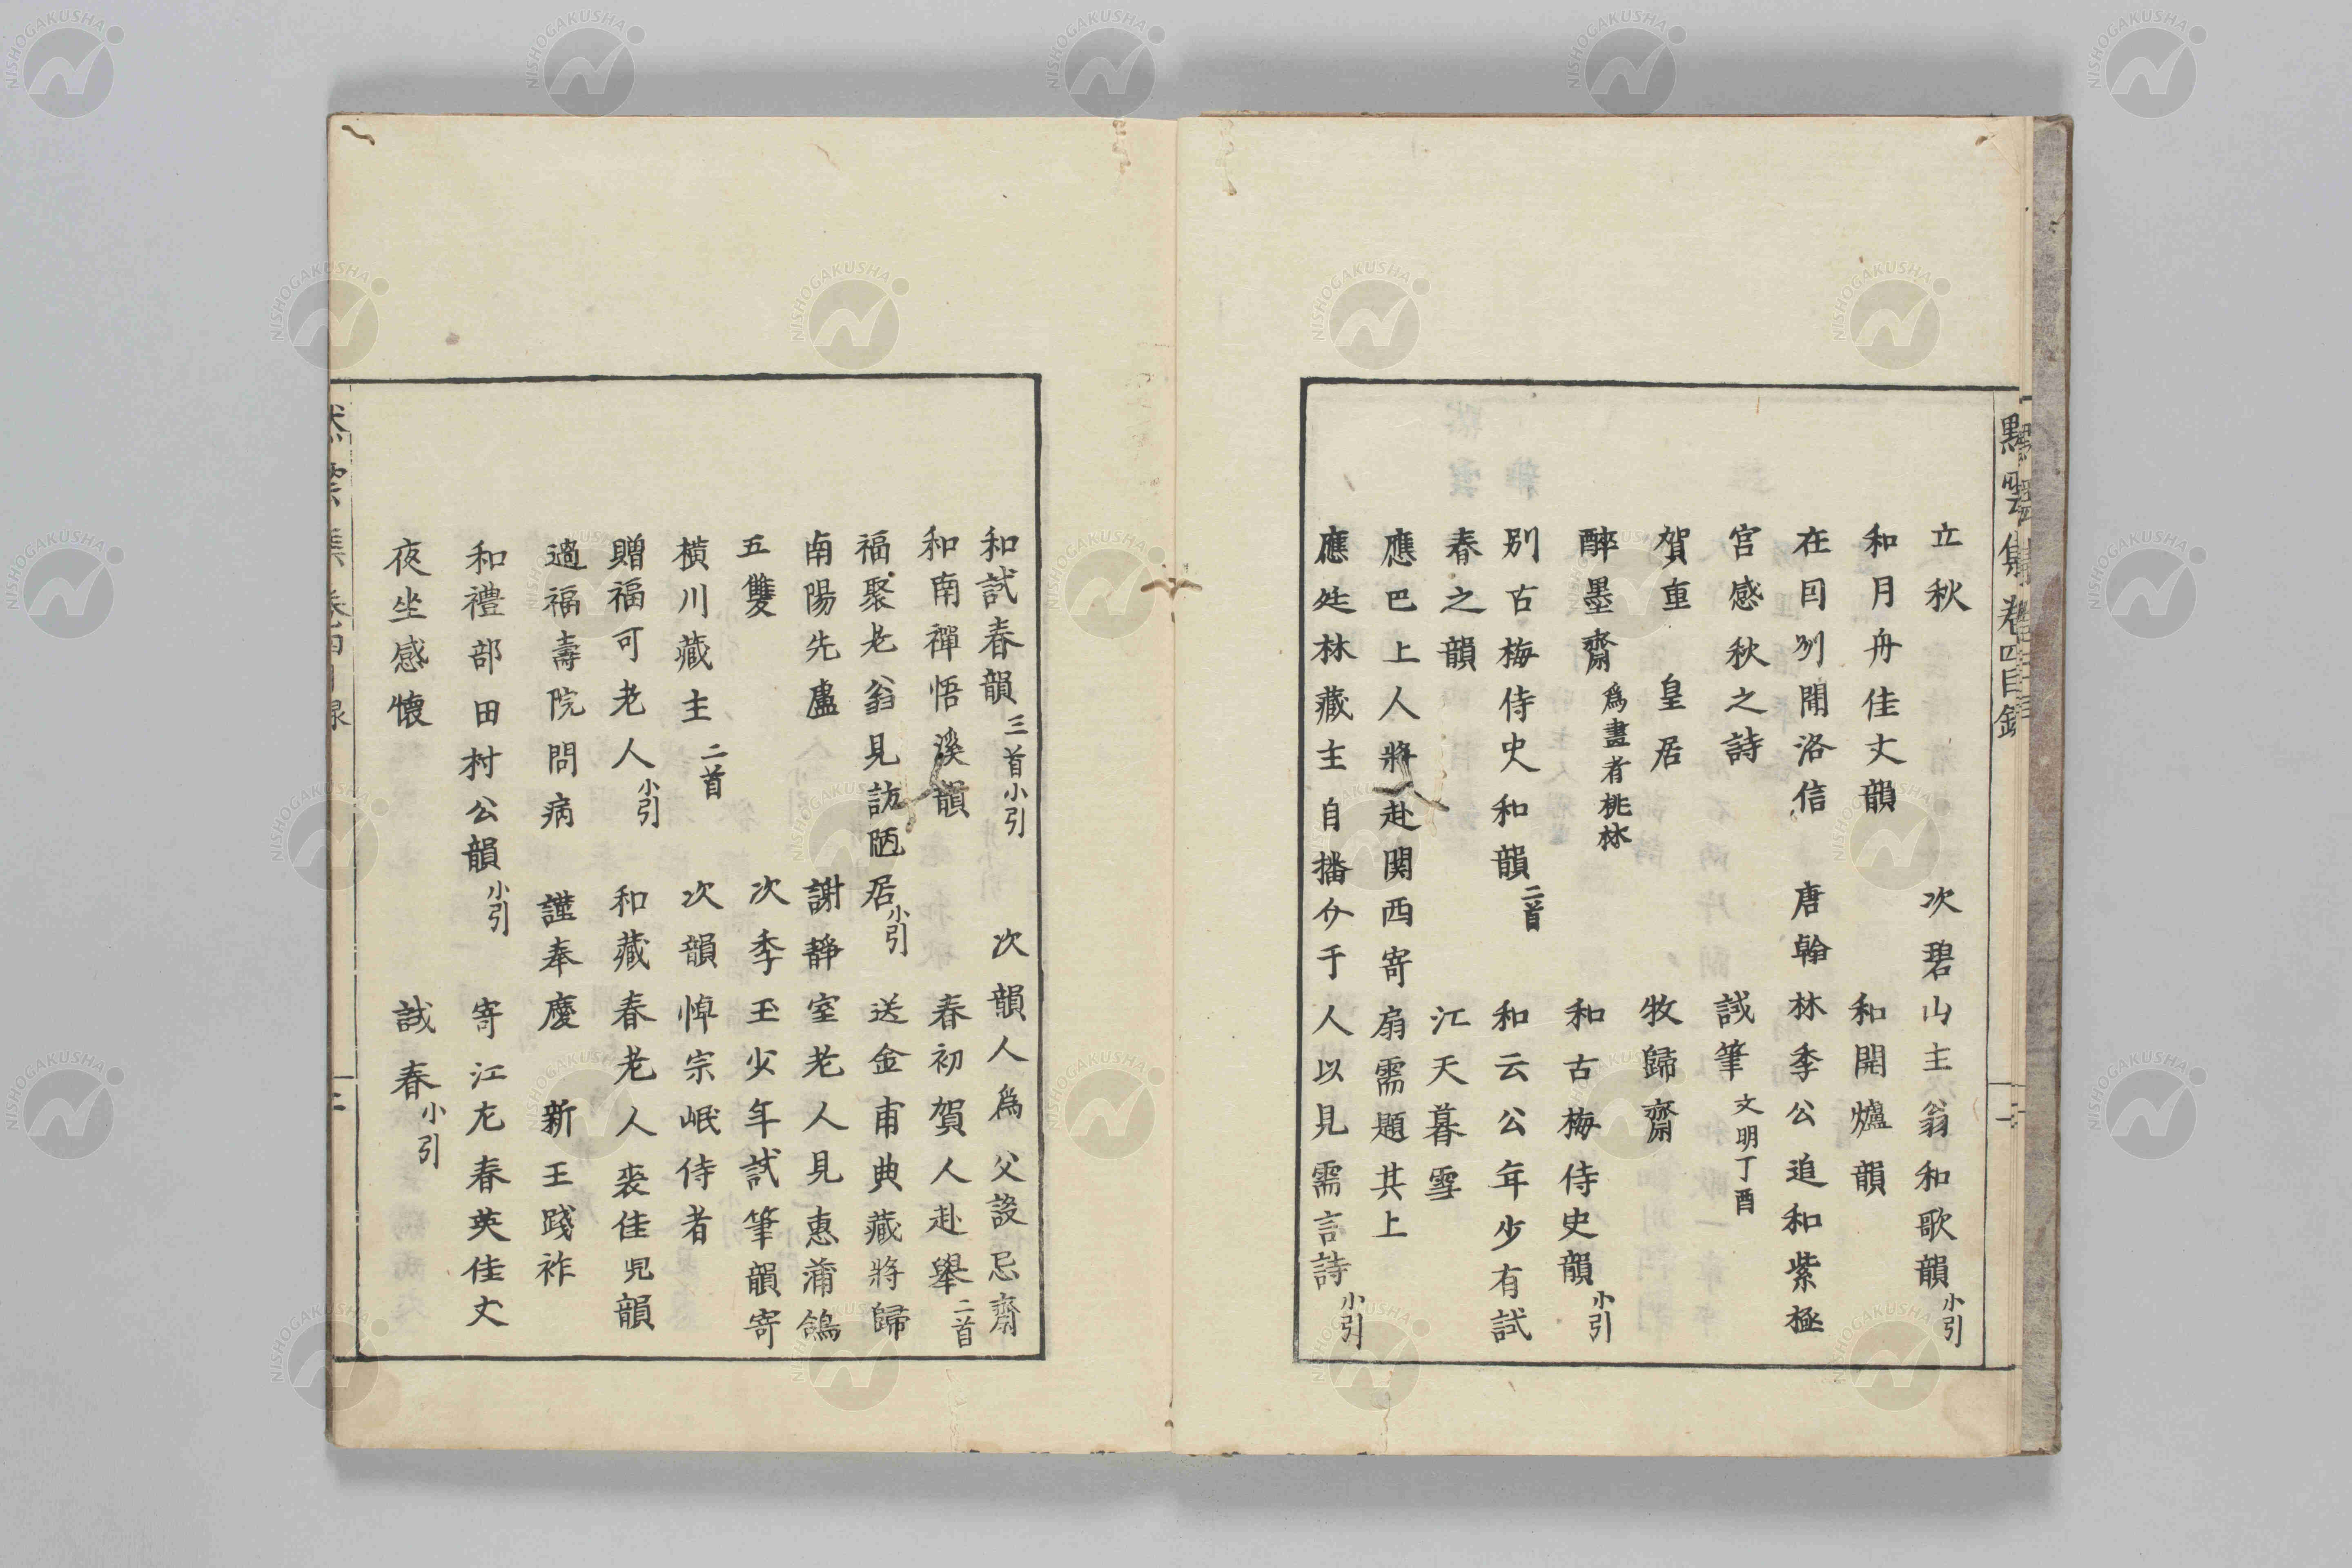 黙雲集卷四目録
立秋　次碧山主翁和歌韻小引
和月舟佳丈韻　和開爐韻
在因州聞洛信　唐翰林李公追和紫極
宮感秋之詩　試筆文明丁酉
賀重　皇居　牧歸齋
醉墨齋爲畫者桃林　和古梅侍史韻小引
別古梅侍史和韻二首　和云公年少有試
春之韻　江天暮雪
應巴上人將赴関西寄扇需題其上
應处林藏主自播兮于人以見需言詩小引
和試春韻三首小引　次韻人爲父設忌齋
和南禪悟溪韻　春初賀人赴舉二首
福聚老翁見訪陋居小引　送金甫典藏將歸
南陽先盧　謝靜室老人見惠蒲鴿
五雙　次季玉少年試筆韻寄
横川藏主二首　次韻悼宗岷侍者
贈福可老人小引　和藏春老人裘佳児韻
過福壽院問病　謹奉慶　新王踐祚
和禮部田村公韻小引　寄江左春英佳丈
夜坐感懷　試春小引
NISHOGAKUSHA